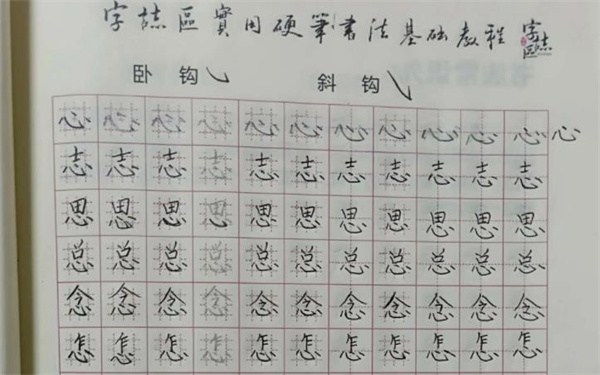 字誌區實用硬筆书法基础教程 字誌區
卧钩㇃ 斜钩㇂
心心心心心心心心心心心心
志志志志志志志志志志志
思思思思思思思思思思思
总总总总总总总总总总总
念念念念念念念念念念念
怎怎怎怎怎怎怎怎怎怎怎